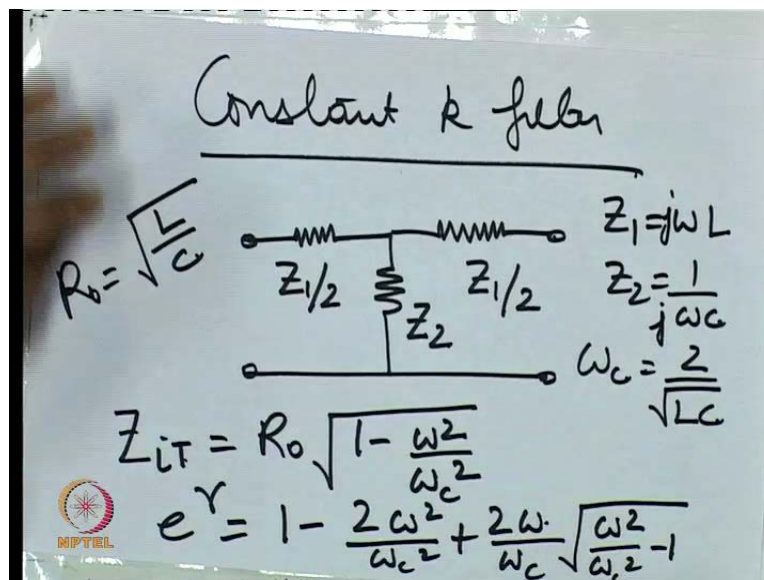 Constant k filter
R₀ = √(L/C)
Z₁ = jωL
Z₁/2
Z₁/2
Z₂ = 1/jωC
Z₂
ω_c = 2/√(LC)
Z_iT = R₀ √(1 - ω²/ω_c²)
e^γ = 1 - 2ω²/ω_c² + 2ω/ω_c √(ω²/ω_c² - 1)
NPTEL